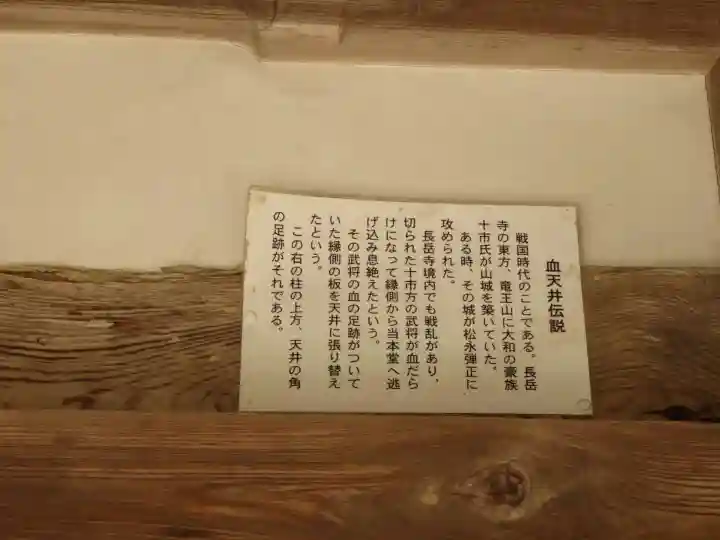 血天井伝説
戦国時代のことである。長岳
寺の東方、竜王山に大和の豪族
十市氏が山城を築いていた。
ある時、その城が松永弾正に
攻められた。
長岳寺境内でも戦乱があり、
切られた十市方の武将が血だら
けになって縁側から当本堂へ逃
げ込み息絶えたという。
その武将の血の足跡がついて
いた縁側の板を天井に張り替え
たという。
この右の柱の上方、天井の角
の足跡がそれである。